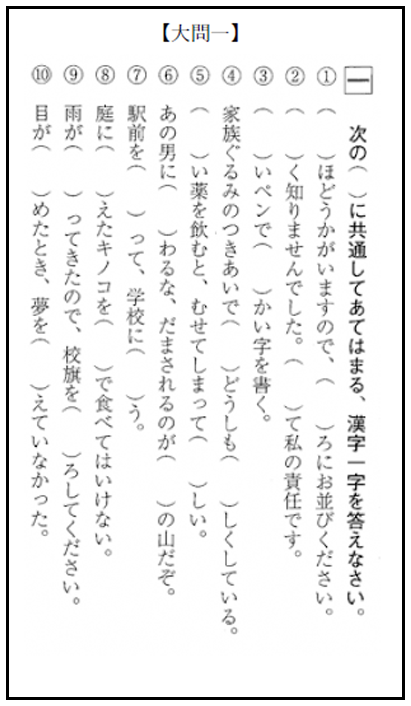 【大問一】
一 次の（　）に共通してあてはまる、漢字一字を答えなさい。
① （　）ほどうかがいますので、（　）ろにお並びください。
② （　）く知りませんでした。（　）て私の責任です。
③ （　）いペンで（　）かい字を書く。
④ 家族ぐるみのつきあいで（　）どうしも（　）しくしている。
⑤ （　）い薬を飲むと、むせてしまって（　）しい。
⑥ あの男に（　）わるな、だまされるのが（　）の山だぞ。
⑦ 駅前を（　）って、学校に（　）う。
⑧ 庭に（　）えたキノコを（　）で食べてはいけない。
⑨ 雨が（　）ってきたので、校旗を（　）ろしてください。
⑩ 目が（　）めたとき、夢を（　）えていなかった。